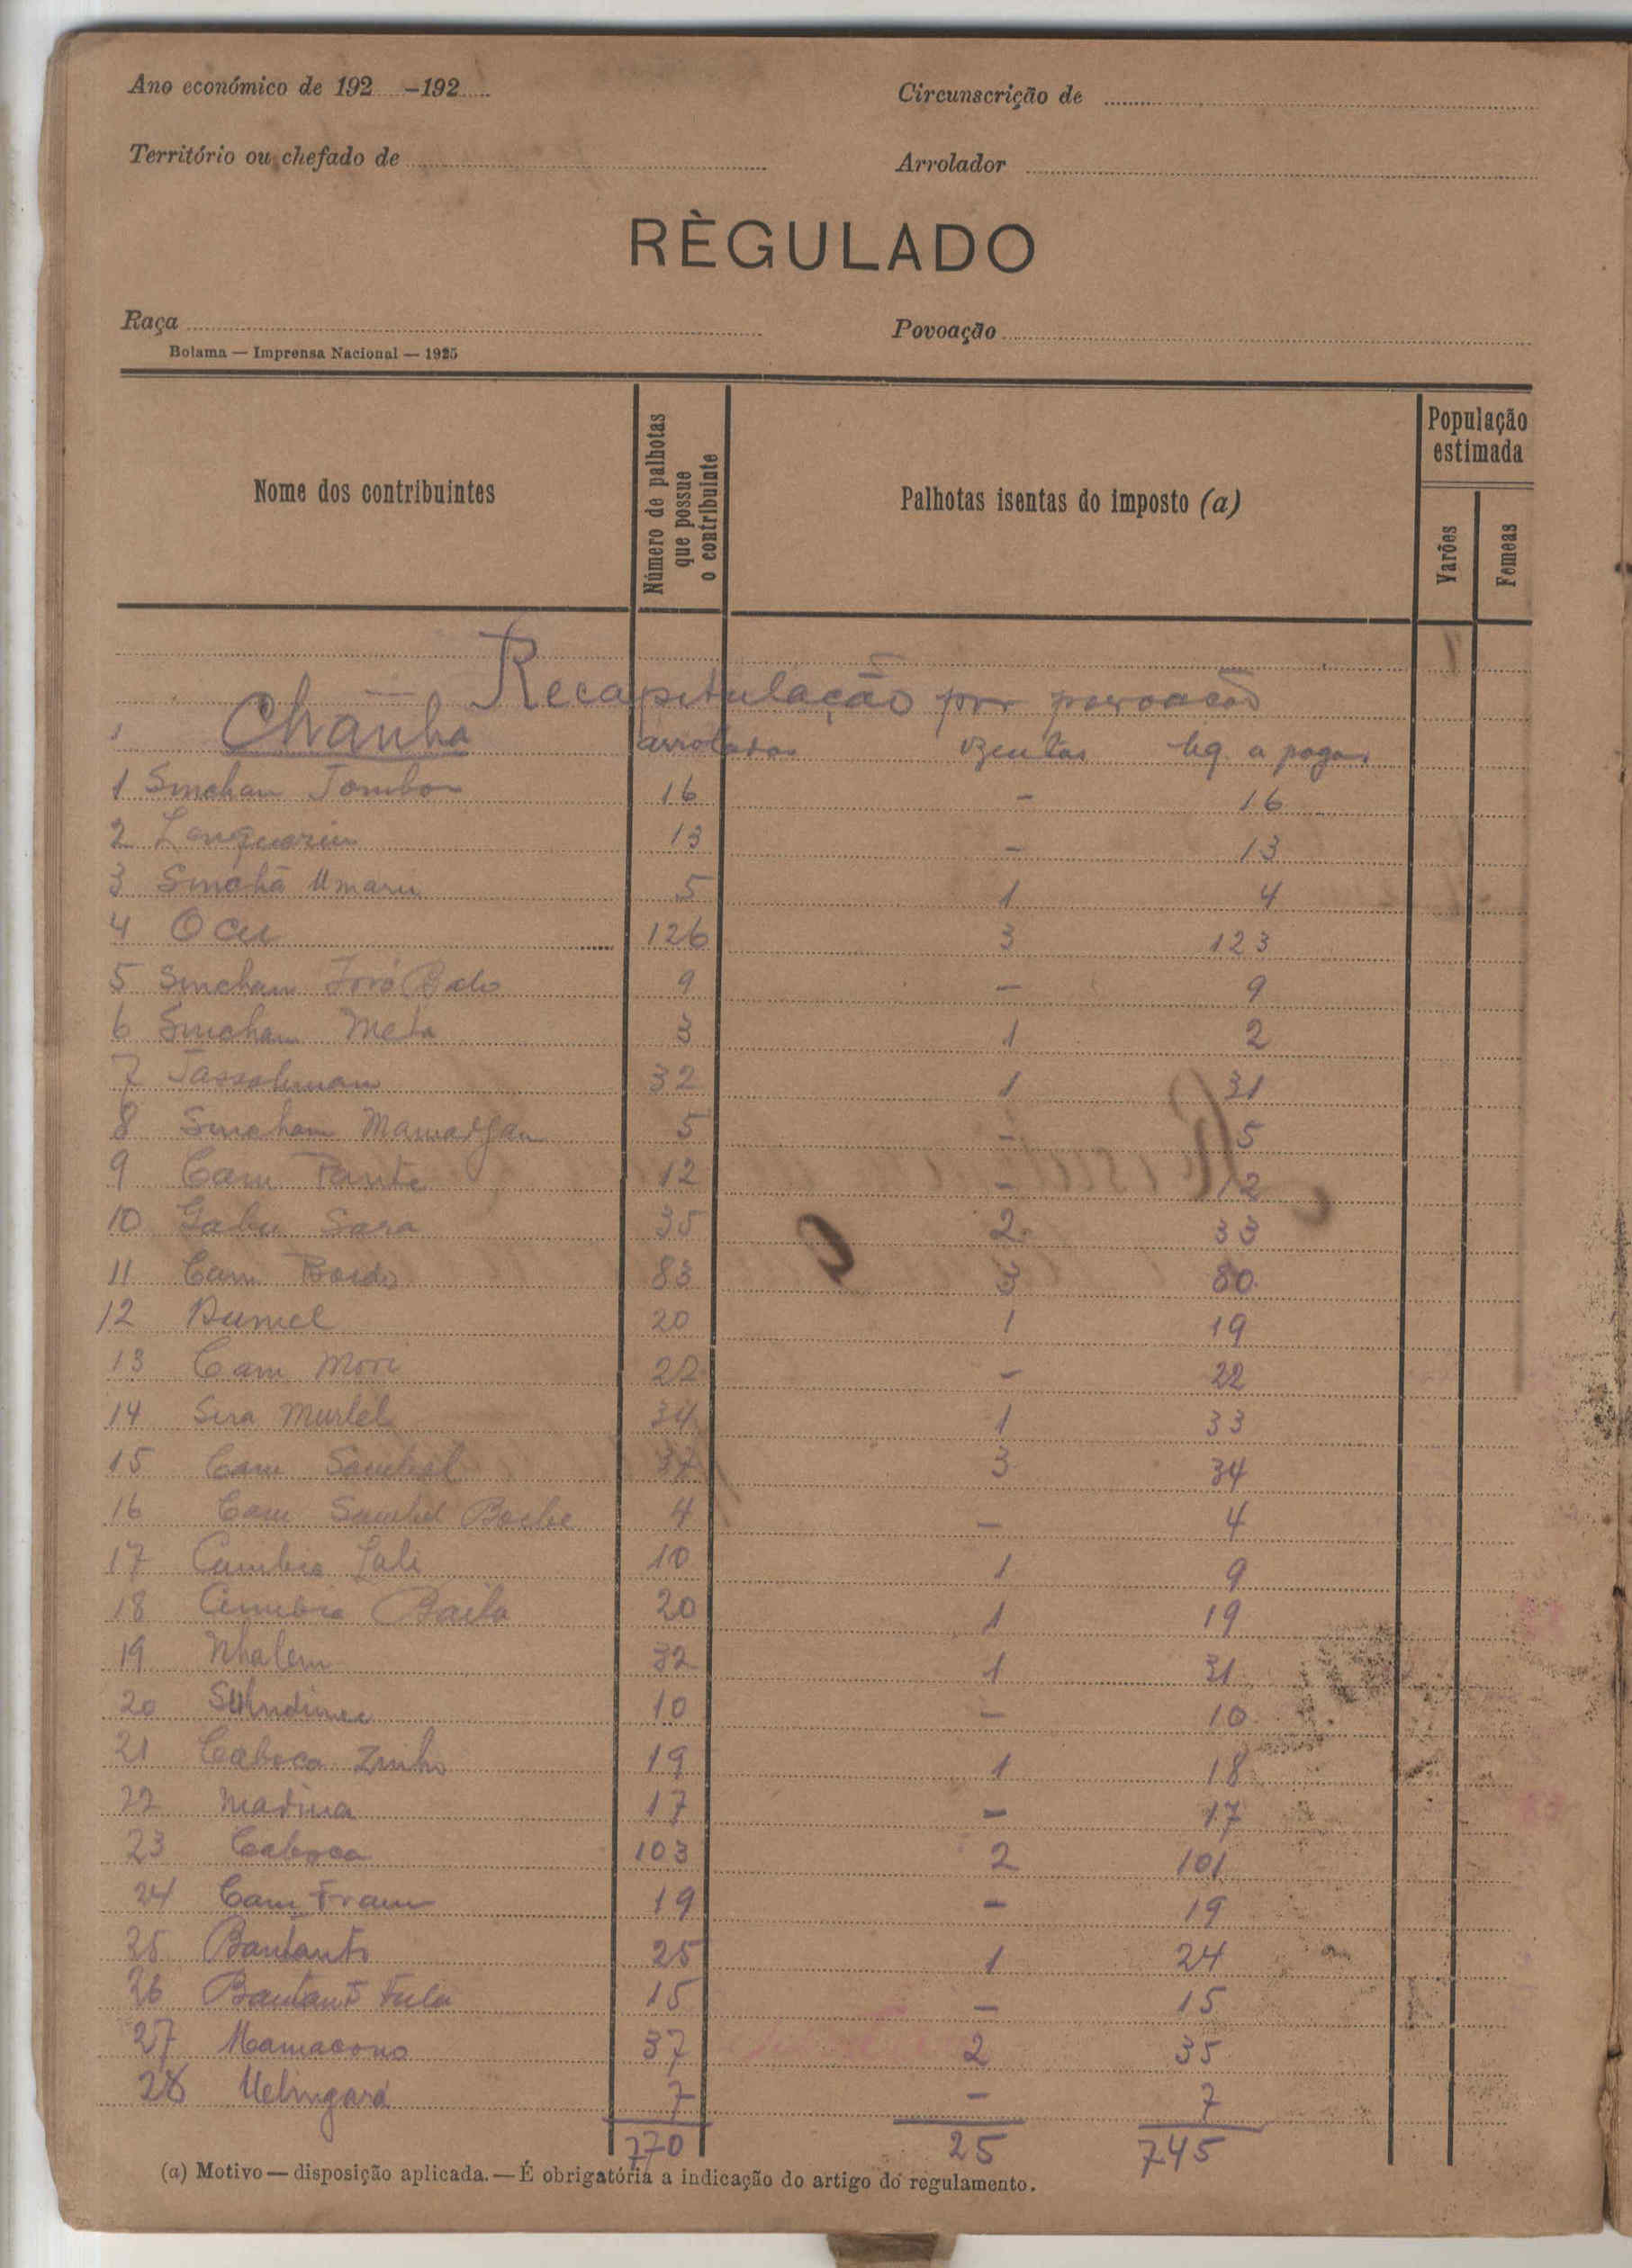 Ano económico de 192 -192
Circunscrição de
Território ou chefado de
Arrolador
RÈGULADO
Raça
Povoação
Bolama — Imprensa Nacional — 1925
Nome dos contribuintes
Número de palhotas que possue o contribuinte
Palhotas isentas do imposto (a)
População estimada
Varões
Femeas
Recapitulação por povoacão
Chanha arroladas izentas liq. a pagar
1 Sinchan Tombon 16 - 16
2 13 - 13
3 Sinchã Umaru 5 1 4
4 Ocu 126 3 123
5 Sincham 9 - 9
6 Sincham Meta 3 1 2
7 32 1 31
8 Sincham 5 - 5
9 Cam 12 - 12
10 Gabu Sara 35 2 33
11 Cam 83 3 80
12 20 1 19
13 Cam Mori 22 - 22
14 34 1 33
15 Cam 37 3 34
16 Cam 4 - 4
17 10 1 9
18 Baila 20 1 19
19 Nhalem 32 1 31
20 10 - 10
21 Caboca Zinho 19 1 18
22 Madina 17 - 17
23 Caboca 103 2 101
24 Cam Fram 19 - 19
25 Bantanto 25 1 24
26 Fula 15 - 15
27 Mamacono 37 2 35
28 Uelingará 7 - 7
770 25 745
(a) Motivo — disposição aplicada. — É obrigatória a indicação do artigo do regulamento.